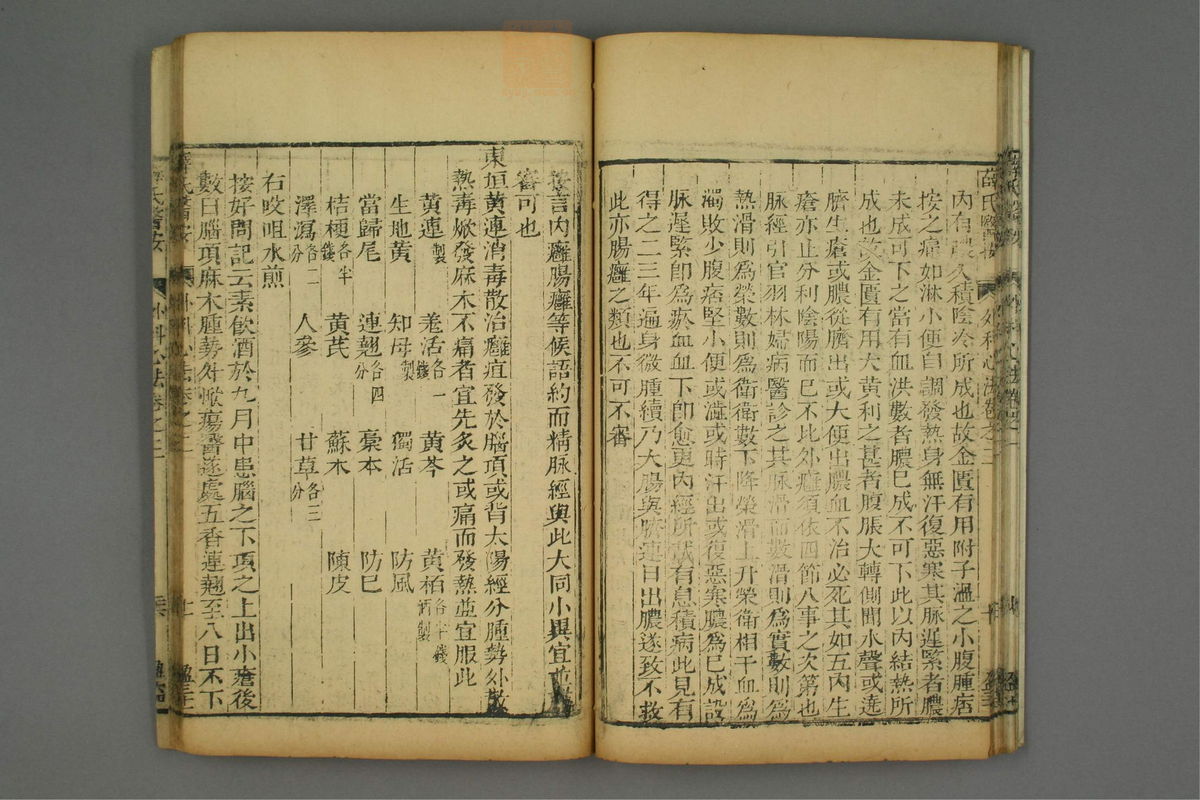 薛氏醫按 外科心法卷之二
內有 久積陰冷所成也故金匱有用附子溫之小腹腫痞
按之痛如淋小便自調發熱身無汗復惡寒其脉遲緊者膿
未成可下之當有血洪數者膿已成不可下此以內結熱所
成也故金匱有用大黃利之甚者腹脹大轉側聞水聲或遶
臍生瘡或膿從臍出或大便出膿血不治必死其如五內生
瘡亦止分利陰陽而已不比外癰須依四節八事之次第也
脉經引官羽林婦病醫診之其脉滑而數滑則爲實數則爲
熱滑則爲榮數則爲衛衛數下降榮滑上升榮衛相干血爲
濁敗少腹痞堅小便或澁或時汗出或復惡寒膿爲已成設
脉遲緊卽爲瘀血血下卽愈更內經所載有息積病此見有
得之二三年遍身微腫續乃大腸與臍連日出膿遂致不救
此亦腸癰之類也不可不審
按言內癰腸癰等候語約而精脉經與此大同小異宜並
審可也
東垣黃連消毒散治癰疽發於腦項或背太陽經分腫勢外散
熱毒焮發麻木不痛者宜先灸之或痛而發熱並宜服此
黃連製 羌活各一錢 黃芩 黃栢各半錢酒製
生地黃 知母製 獨活 防風
當歸尾 連翹各四分 藁本 防巳
桔梗各半錢 黃芪 蘇木 陳皮
澤瀉各二分 人參 甘草各三分
右㕮咀水煎
按好問記云素飲酒於九月中患腦之下項之上出小瘡後
數日腦項麻木腫勢外焮瘍醫遂處五香連翹至八日不下
薛氏醫按 外科心法卷之二